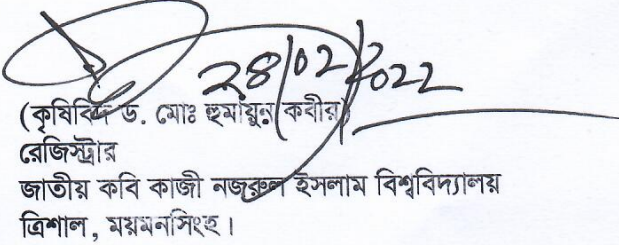 ২৪/০২/২০২২
(কৃষিবিদ ড. মোঃ হুমায়ুন কবীর)
রেজিস্ট্রার
জাতীয় কবি কাজী নজরুল ইসলাম বিশ্ববিদ্যালয়
ত্রিশাল, ময়মনসিংহ।